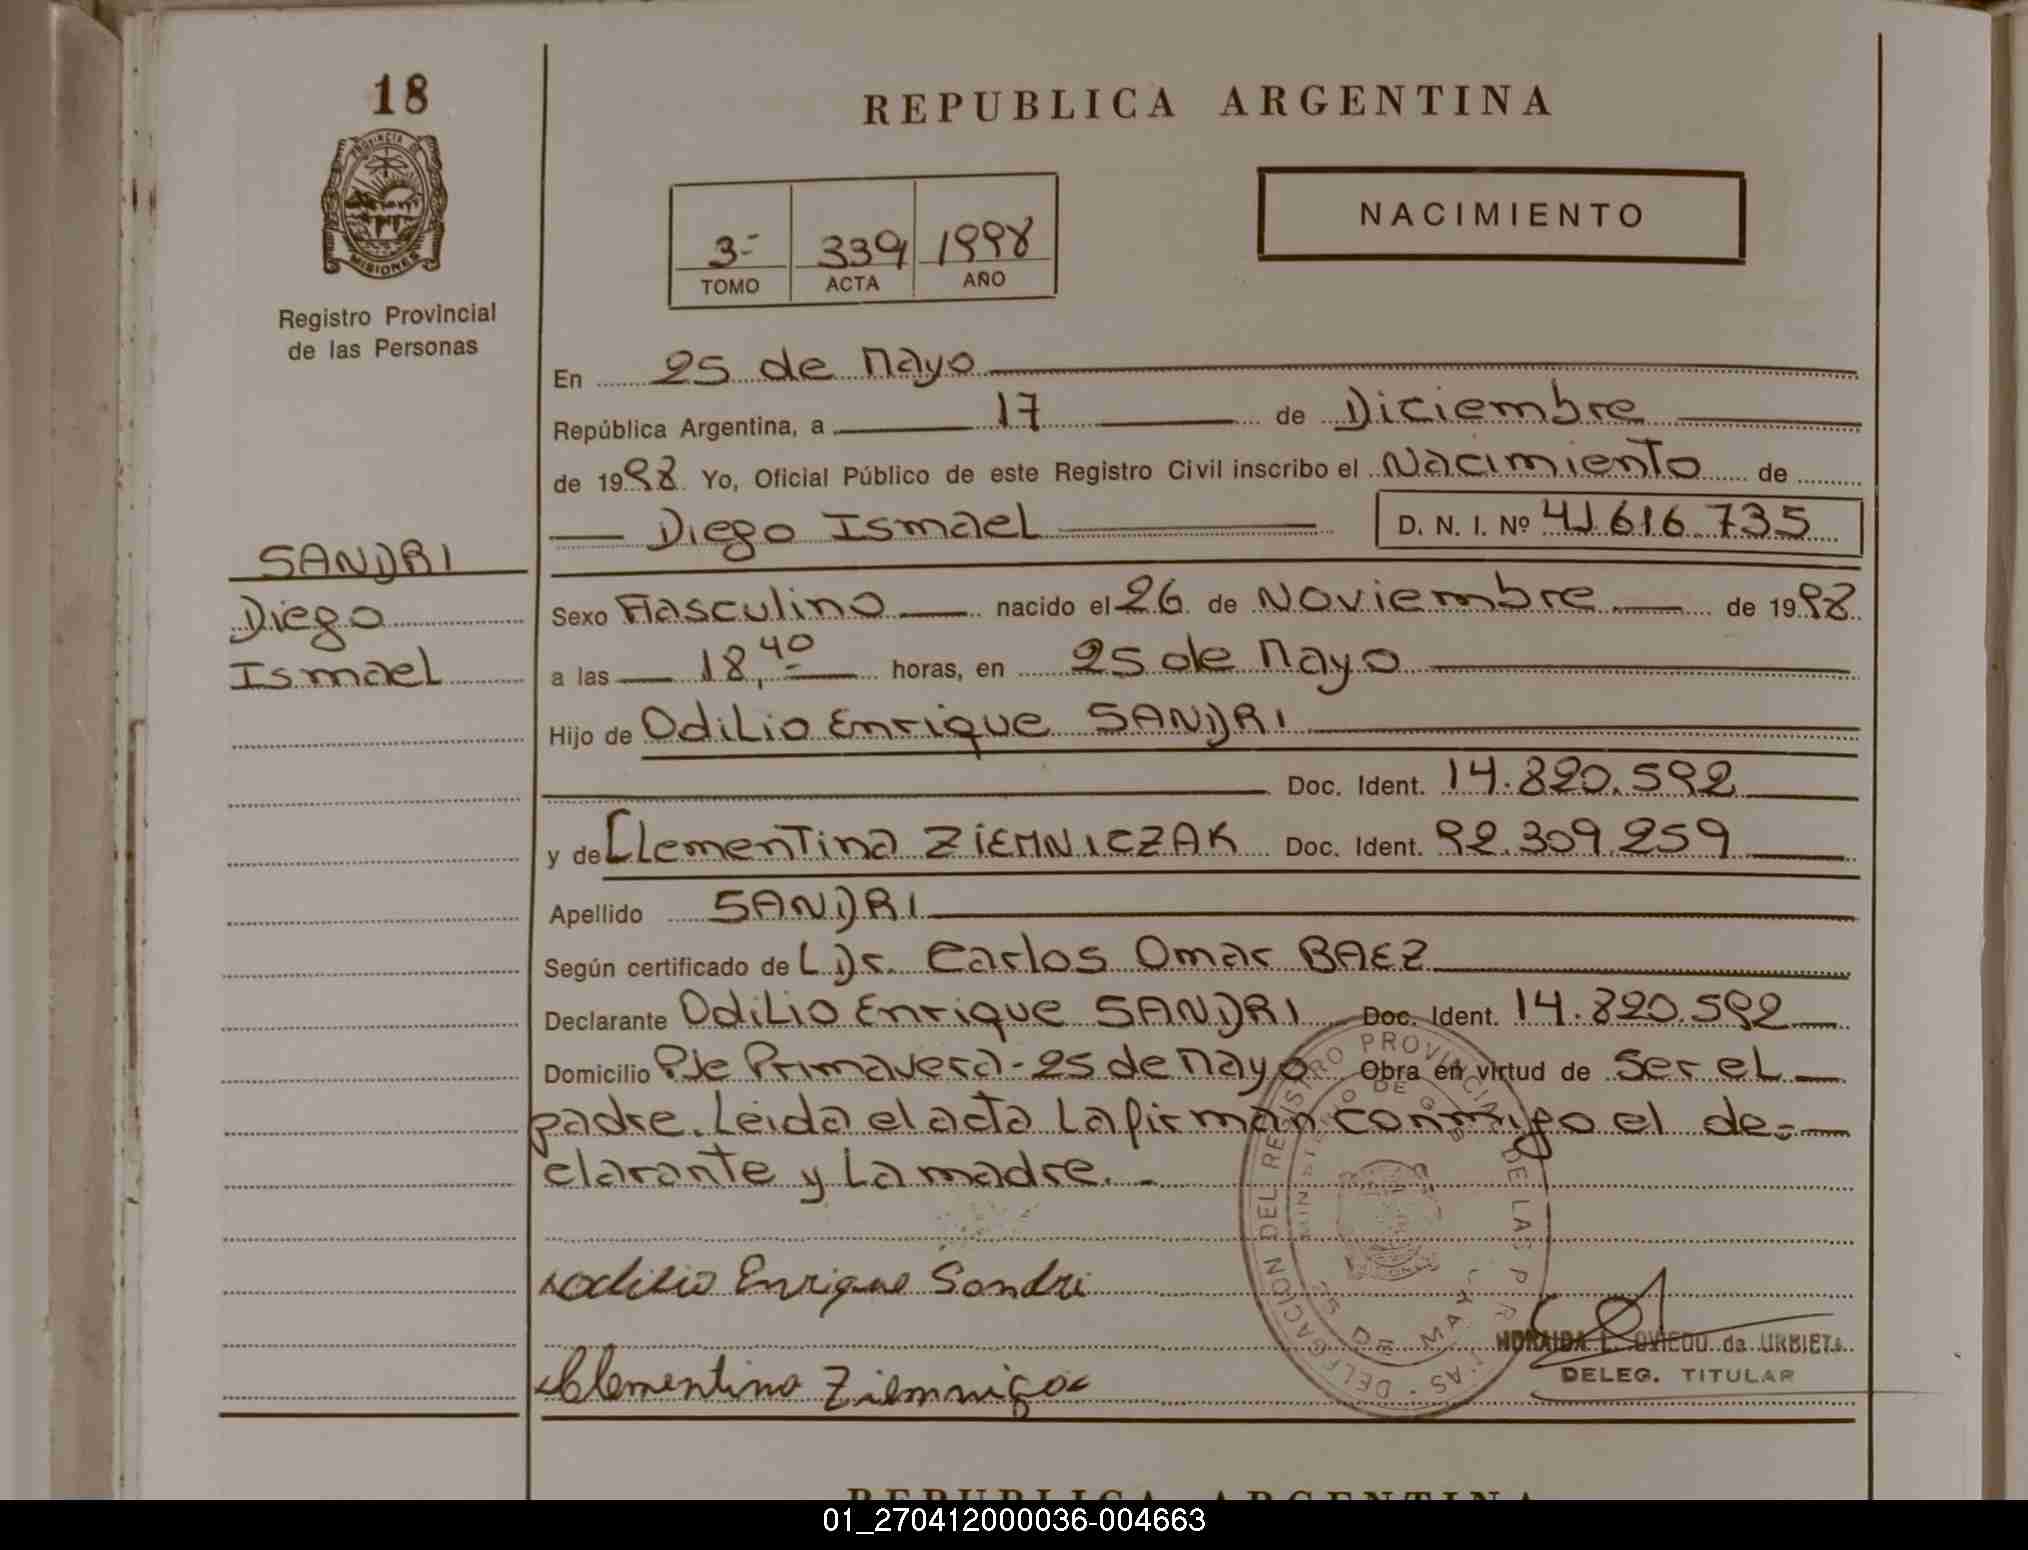 18
PROVINCIA DE
MISIONES
Registro Provincial
de las Personas
SANDRI
Diego
Ismael
REPUBLICA ARGENTINA
NACIMIENTO
3- 339 1998
TOMO ACTA AÑO
En 25 de Mayo
República Argentina, a 17 de Diciembre
de 1998 Yo, Oficial Público de este Registro Civil inscribo el Nacimiento de
Diego Ismael D. N. I. Nº 41.616.735
Sexo Masculino nacido el 26 de Noviembre de 1998
a las 18,40 horas, en 25 de Mayo
Hijo de Odilio Enrique SANDRI
Doc. Ident. 14.820.592
y de Clementina ZIEMNICZAK Doc. Ident. 92.309.259
Apellido SANDRI
Según certificado de L Dr. Carlos Omar BAEZ
Declarante Odilio Enrique SANDRI Doc. Ident. 14.820.592
Domicilio Pje Primavera - 25 de Mayo Obra en virtud de Ser el
padre. Leida el acta la firman conmigo el de-
clarante y la madre. -
Odilio Enrique Sandri
Clementina
DELEGACION DEL REGISTRO PROVINCIAL DE LAS P
25 DE MAYO
L. OVIEDO de URBIETA
DELEG. TITULAR
REPUBLICA ARGENTINA
01_270412000036-004663